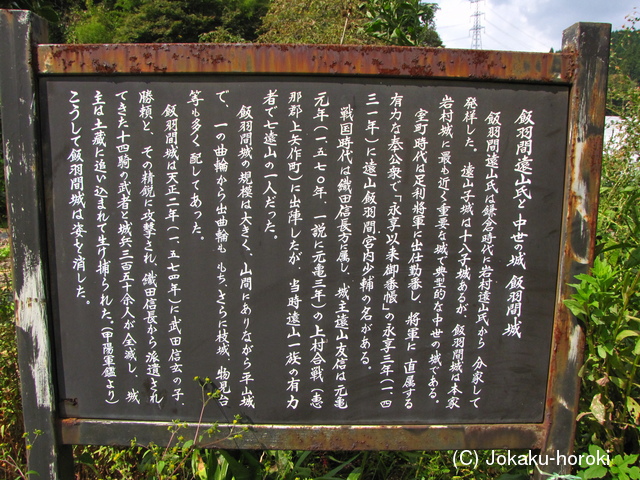 飯羽間遠山氏と中世の城 飯羽間城
飯羽間遠山氏は鎌倉時代に岩村遠山氏から 分家して
発祥した。遠山子城は十八子城あるが、飯羽間城は本家
岩村城に最も近く重要な城で典型的な中世の城である。
室町時代は足利将軍に出仕勤番し、将軍に直属する
有力な奉公衆で「永享以来御番帳」の永享三年(一、四
三一年)に遠山飯羽間宮内少輔の名がある。
戦国時代は織田信長方に属し、城主遠山友信は元亀
元年(一、五七〇年、一説に元亀三年)の上村合戦(恵
那郡上矢作町)に出陣したが、当時遠山一族の有力
者で七遠山の一人だった。
飯羽間城の規模は大きく、山間にありながら平山城
で、一の曲輪から出曲輪も もち、さらに枝城、物見台
等も多く配してあった。
飯羽間城は天正二年(一、五七四年)に武田信玄の子、
勝頼と、その精鋭に攻撃され、織田信長から派遣され
てきた十四騎の武者と城兵三百五十余人が全滅し、城
主は土蔵に追い込まれて生け捕られた。(甲陽軍鑑より)
こうして飯羽間城は姿を消した。
(C) Jokaku-horoki